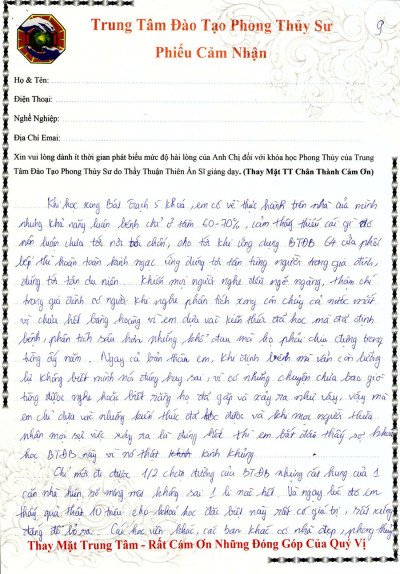 9
Trung Tâm Đào Tạo Phong Thủy Sư
Phiếu Cảm Nhận
Họ & Tên:
Điện Thoại:
Nghề Nghiệp:
Địa Chỉ Emai:
Xin vui lòng dành ít thời gian phát biểu mức độ hài lòng của Anh Chị đối với khóa học Phong Thủy của Trung
Tâm Đào Tạo Phong Thủy Sư do Thầy Thuận Thiên Ẩn Sĩ giảng dạy. (Thay Mặt TT Chân Thành Cảm Ơn)
Khi học xong Bát Trạch 5 khoá, em có về thực hành trên nhà của mình
nhưng khả năng luận bệnh chỉ ở tầm 60-70%, cảm thấy thiếu cái gì đó
nên luận chưa tới nơi tới chốn, cho tới khi ứng dụng BTĐB 64 cửa phối
bếp thì hoàn toàn kinh ngạc ứng đúng tới tận từng người trong gia đình,
đúng tới tận du niên... Khiến mọi người nghe đều ngỡ ngàng, thậm chí
trong gia đình có người khi nghe phân tích xong còn chảy cả nước mắt
vì chưa hết bàng hoàng vì em dựa vào kiến thức đã học mà đã định
bệnh, phân tích sâu hơn những khổ đau mà họ phải chịu đựng trong
từng ấy năm. Ngay cả bản thân em, khi định bệnh mà vẫn còn
không biết mình nói đúng hay sai, vì có những chuyện chưa bao giờ
từng được nghe hoặc biết rằng họ đã gặp và xảy ra như vậy, vậy mà
em chỉ dựa vào những kiến thức đã học được và khi mọi người thừa
nhận mọi sự việc xảy ra là đúng hết thì em bắt đầu thấy sợ khoá
học BTĐB này vì nó thật kinh khủng.
Chỉ mới đi được 1/2 chặn đường của BTĐB nhưng cát hung của 1
căn nhà hiện rõ mồng một không sai 1 li nào hết. Và ngay lúc đó em
thấy quả thật 10 triệu cho khoá học đầu tiên này rất có giá trị, rất xứng
đáng để bỏ ra. Các học viên khác, các bạn khác có nhà đẹp, phong thuỷ
Thay Mặt Trung Tâm - Rất Cảm Ơn Những Đóng Góp Của Quý Vị